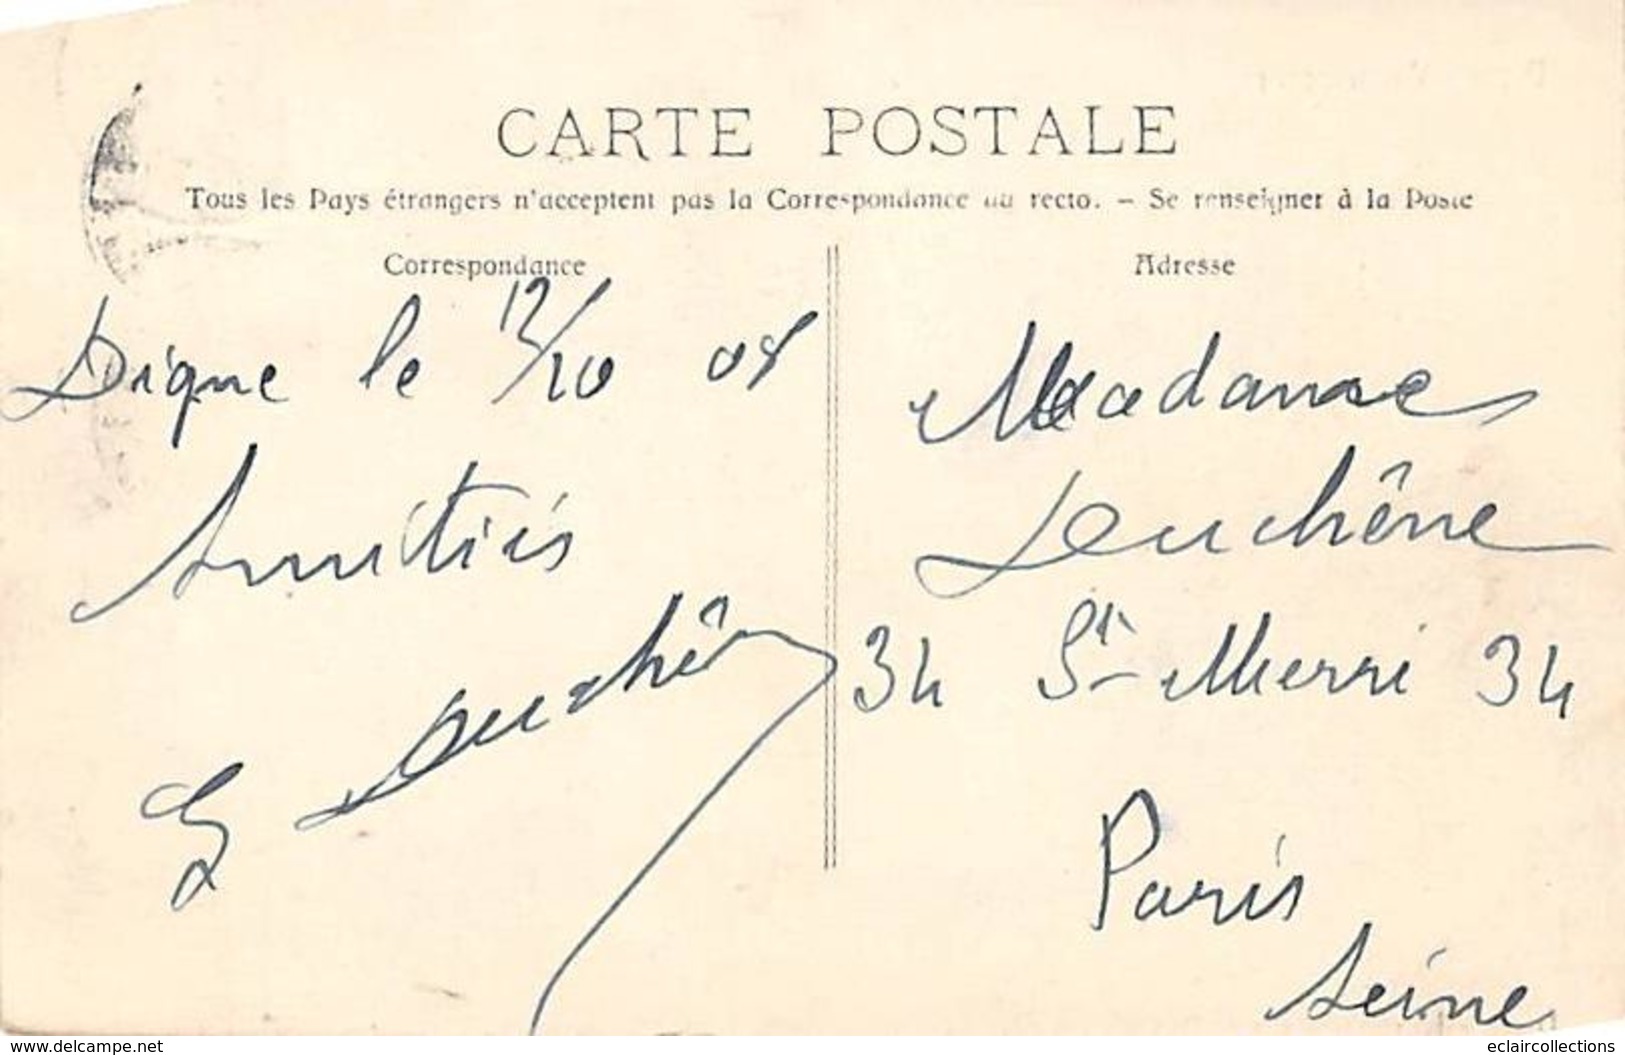 CARTE POSTALE
Tous les Pays étrangers n'acceptent pas la Correspondance au recto. – Se renseigner à la Poste
Correspondance
Digne le 12/10 08
Amitiés
Duchêne
Adresse
Madame
Duchêne
34 St Merri 34
Paris
Seine
www.delcampe.net
eclaircollections